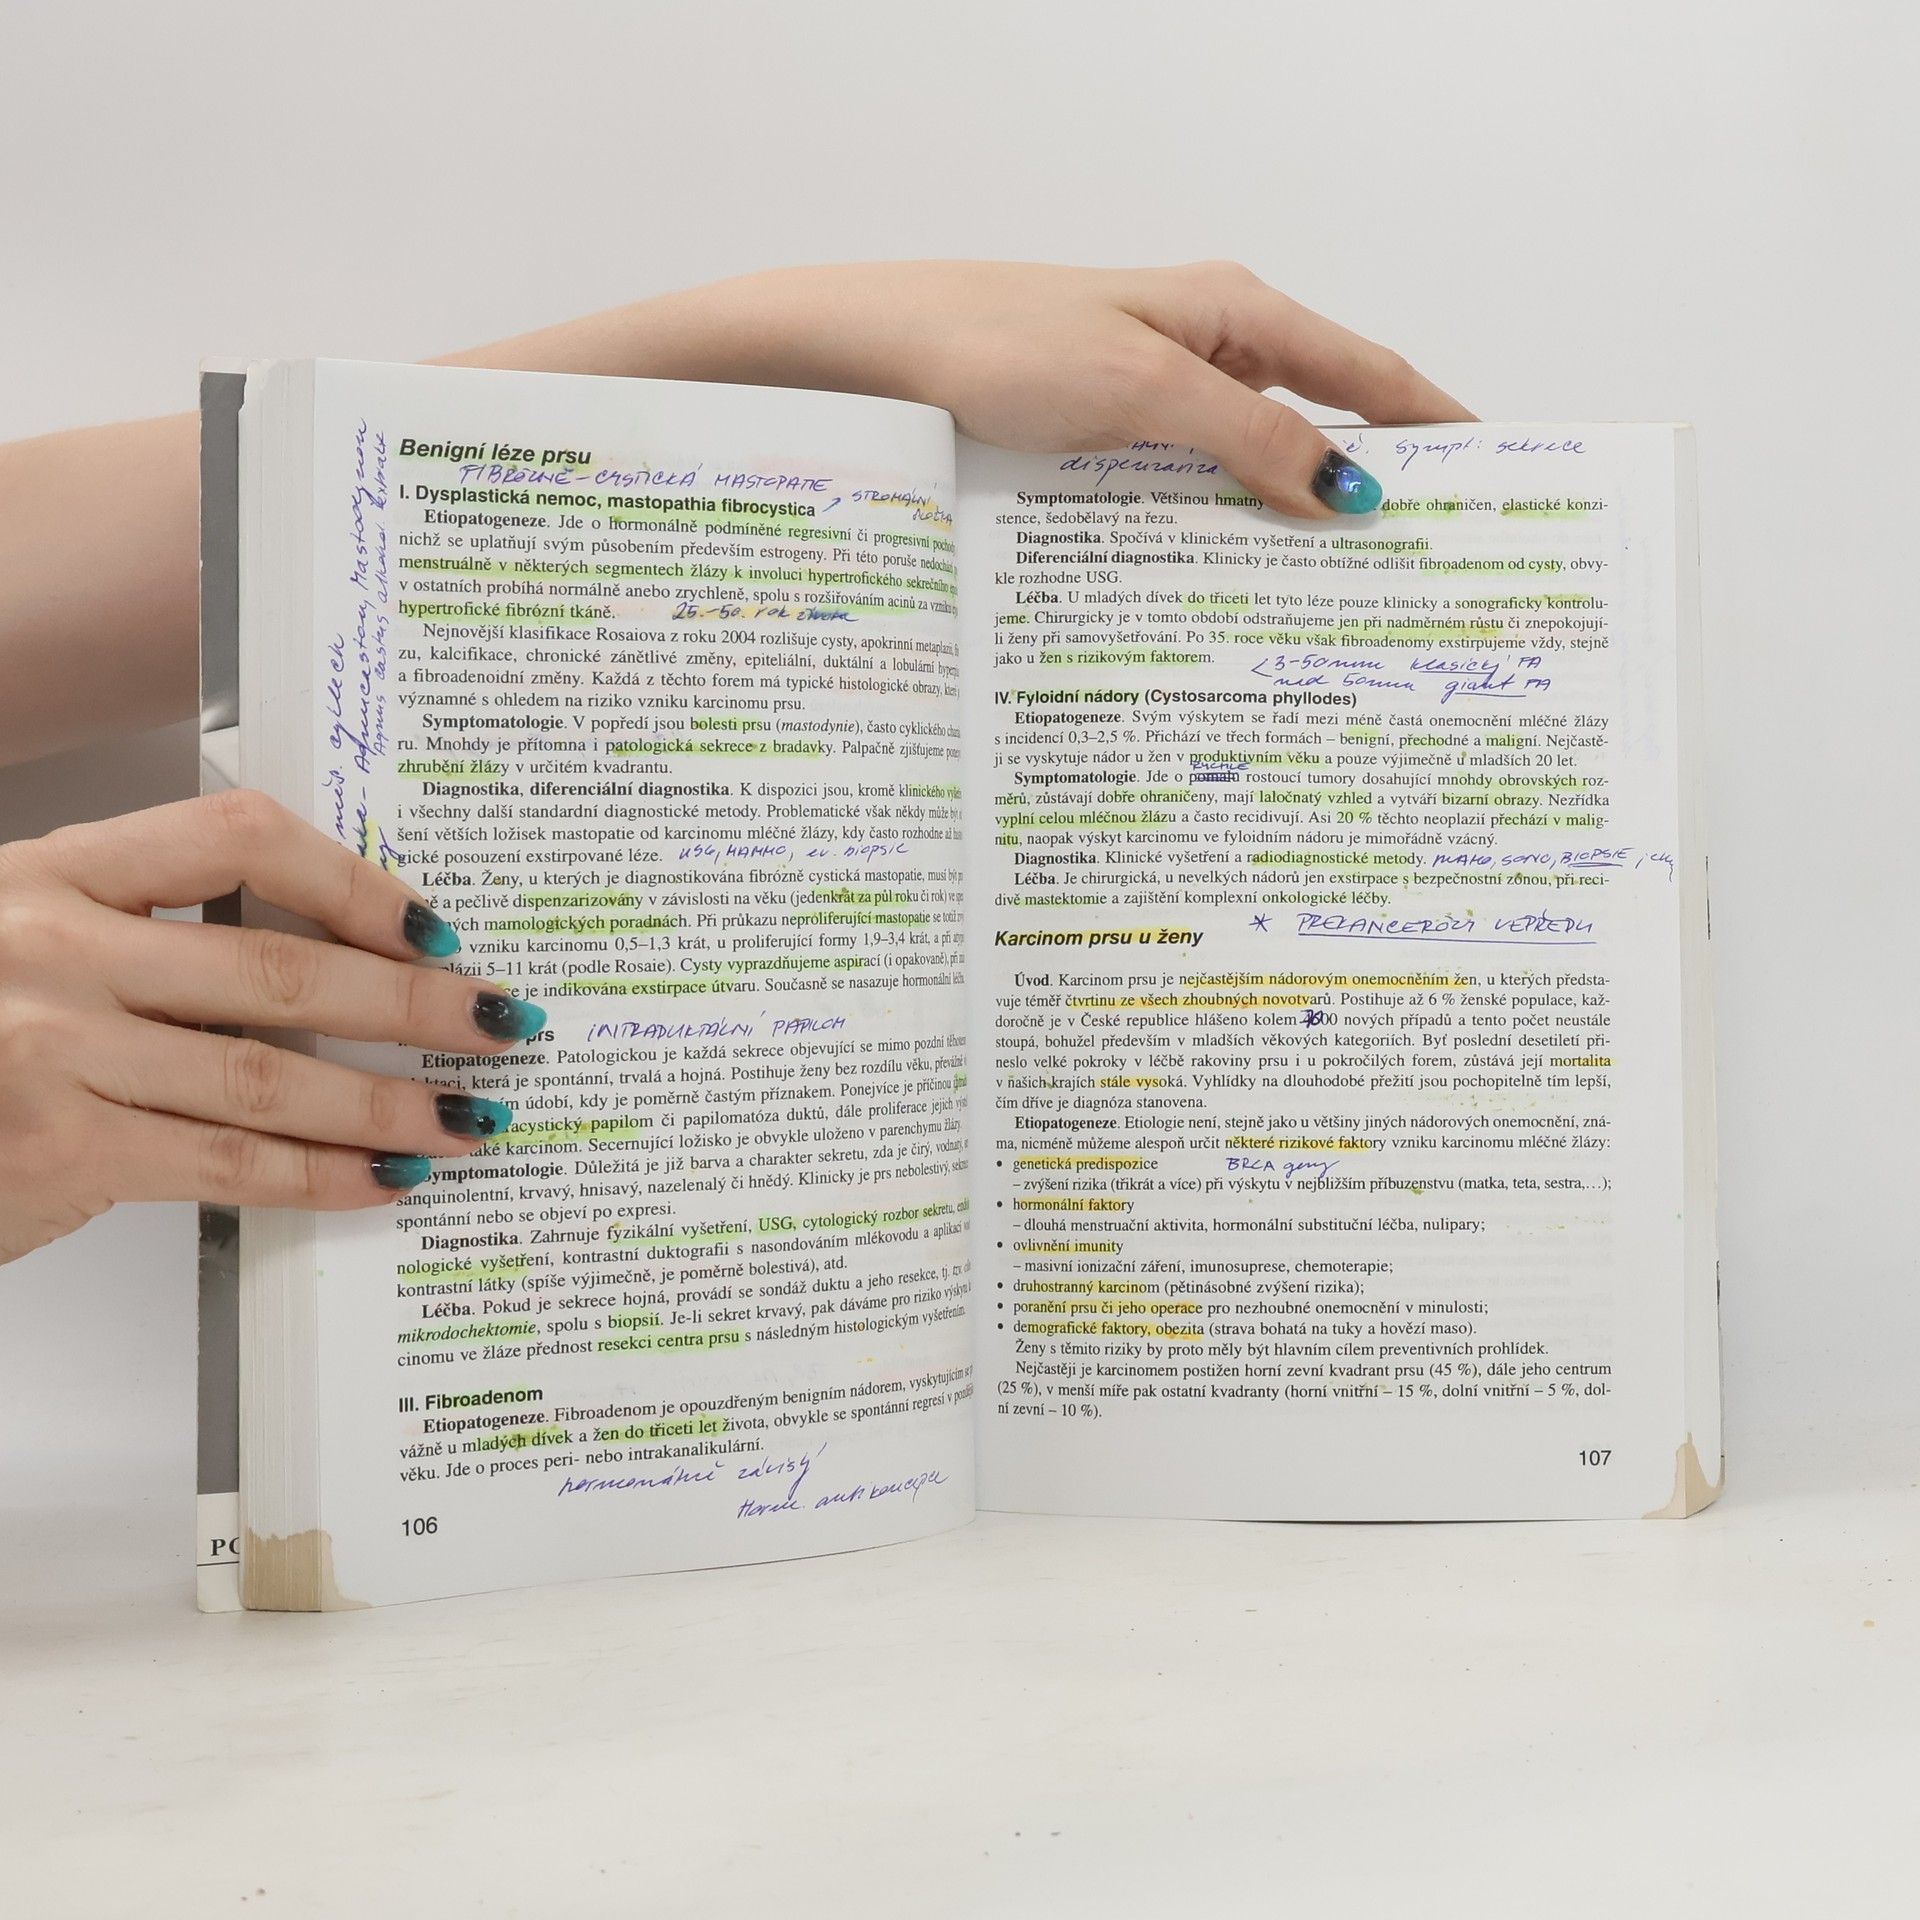 Benigní léze prsu
FIBRÓZNĚ-CYSTICKÁ MASTOPATIE
I. Dysplastická nemoc, mastopathia fibrocystica
STROMÁLNÍ
Etiopatogeneze. Jde o hormonálně podmíněné regresivní či progresivní pochody
nichž se uplatňují svým působením především estrogeny. Při této poruše nedochází
menstruálně v některých segmentech žlázy k involuci hypertrofického sekrečního
v ostatních probíhá normálně anebo zrychleně, spolu s rozšiřováním acinů za vzniku
hypertrofické fibrózní tkáně. 25.-50. rok života
Nejnovější klasifikace Rosaiova z roku 2004 rozlišuje cysty, apokrinní metaplazii,
zu, kalcifikace, chronické zánětlivé změny, epiteliální, duktální a lobulární
a fibroadenoidní změny. Každá z těchto forem má typické histologické obrazy, které
významné s ohledem na riziko vzniku karcinomu prsu.
Symptomatologie. V popředí jsou bolesti prsu (mastodynie), často cyklického
ru. Mnohdy je přítomna i patologická sekrece z bradavky. Palpačně zjišťujeme
zhrubění žlázy v určitém kvadrantu.
Diagnostika, diferenciální diagnostika. K dispozici jsou, kromě klinického
i všechny další standardní diagnostické metody. Problematické však někdy může být
šení větších ložisek mastopatie od karcinomu mléčné žlázy, kdy často rozhodne až
gické posouzení exstirpované léze. USG, MAMMO, ev. biopsie
Léčba. Ženy, u kterých je diagnostikována fibrózně cystická mastopatie, musí být
ně a pečlivě dispenzarizovány v závislosti na věku (jedenkrát za půl roku či rok) ve
ných mamologických poradnách. Při průkazu neproliferující mastopatie se totiž
vzniku karcinomu 0,5–1,3 krát, u proliferující formy 1,9–3,4 krát, a při
plázii 5–11 krát (podle Rosaie). Cysty vyprazdňujeme aspirací (i opakovaně), při
ce je indikována exstirpace útvaru. Současně se nasazuje hormonální léčba.
prs INTRADUKTÁLNÍ PAPILOM
Etiopatogeneze. Patologickou je každá sekrece objevující se mimo pozdní těhotenství
laktaci, která je spontánní, trvalá a hojná. Postihuje ženy bez rozdílu věku, převážně
ím údobí, kdy je poměrně častým příznakem. Ponejvíce je příčinou
racystický papilom či papilomatóza duktů, dále proliferace jejich
také karcinom. Secernující ložisko je obvykle uloženo v parenchymu žlázy.
Symptomatologie. Důležitá je již barva a charakter sekretu, zda je čirý, vodnatý,
sanquinolentní, krvavý, hnisavý, nazelenalý či hnědý. Klinicky je prs nebolestivý,
spontánní nebo se objeví po expresi.
Diagnostika. Zahrnuje fyzikální vyšetření, USG, cytologický rozbor sekretu,
nologické vyšetření, kontrastní duktografii s nasondováním mlékovodu a aplikací
kontrastní látky (spíše výjimečně, je poměrně bolestivá), atd.
Léčba. Pokud je sekrece hojná, provádí se sondáž duktu a jeho resekce, tj. tzv.
mikrodochektomie, spolu s biopsií. Je-li sekret krvavý, pak dáváme pro riziko výskytu
cinomu ve žláze přednost resekci centra prsu s následným histologickým vyšetřením.
III. Fibroadenom
Etiopatogeneze. Fibroadenom je opouzdřeným benigním nádorem, vyskytujícím se
vážně u mladých dívek a žen do třiceti let života, obvykle se spontánní regresí v
věku. Jde o proces peri- nebo intrakanalikulární.
hormonálně závislý
Horm. antikoncepce
106
PO
sympt: sekrece
dispenzarizace
Symptomatologie. Většinou hmatný dobře ohraničen, elastické konzi-
stence, šedobělavý na řezu.
Diagnostika. Spočívá v klinickém vyšetření a ultrasonografii.
Diferenciální diagnostika. Klinicky je často obtížné odlišit fibroadenom od cysty, obvy-
kle rozhodne USG.
Léčba. U mladých dívek do třiceti let tyto léze pouze klinicky a sonograficky kontrolu-
jeme. Chirurgicky je v tomto období odstraňujeme jen při nadměrném růstu či znepokojují-
li ženy při samovyšetřování. Po 35. roce věku však fibroadenomy exstirpujeme vždy, stejně
jako u žen s rizikovým faktorem.
3-50mm klasický FA
nad 50mm giant FA
IV. Fyloidní nádory (Cystosarcoma phyllodes)
Etiopatogeneze. Svým výskytem se řadí mezi méně častá onemocnění mléčné žlázy
s incidencí 0,3–2,5 %. Přichází ve třech formách – benigní, přechodné a maligní. Nejčastě-
ji se vyskytuje nádor u žen v produktivním věku a pouze výjimečně u mladších 20 let.
RYCHLE
Symptomatologie. Jde o pomalu rostoucí tumory dosahující mnohdy obrovských roz-
měrů, zůstávají dobře ohraničeny, mají laločnatý vzhled a vytváří bizarní obrazy. Nezřídka
vyplní celou mléčnou žlázu a často recidivují. Asi 20 % těchto neoplazií přechází v malig-
nitu, naopak výskyt karcinomu ve fyloidním nádoru je mimořádně vzácný.
Diagnostika. Klinické vyšetření a radiodiagnostické metody. MAMO, SONO, BIOPSIE
Léčba. Je chirurgická, u nevelkých nádorů jen exstirpace s bezpečnostní zónou, při reci-
divě mastektomie a zajištění komplexní onkologické léčby.
* PREKANCERÓZY VEPŘEDU
Karcinom prsu u ženy
Úvod. Karcinom prsu je nejčastějším nádorovým onemocněním žen, u kterých představa-
vuje téměř čtvrtinu ze všech zhoubných novotvarů. Postihuje až 6 % ženské populace, kaž-
doročně je v České republice hlášeno kolem 00 nových případů a tento počet neustále
stoupá, bohužel především v mladších věkových kategoriích. Byť poslední desetiletí při-
neslo velké pokroky v léčbě rakoviny prsu i u pokročilých forem, zůstává její mortalita
v našich krajích stále vysoká. Vyhlídky na dlouhodobé přežití jsou pochopitelně tím lepší,
čím dříve je diagnóza stanovena.
Etiopatogeneze. Etiologie není, stejně jako u většiny jiných nádorových onemocnění, zná-
ma, nicméně můžeme alespoň určit některé rizikové faktory vzniku karcinomu mléčné žlázy:
• genetická predispozice BRCA geny
– zvýšení rizika (třikrát a více) při výskytu v nejbližším příbuzenstvu (matka, teta, sestra,…);
• hormonální faktory
– dlouhá menstruační aktivita, hormonální substituční léčba, nulipary;
• ovlivnění imunity
– masivní ionizační záření, imunosuprese, chemoterapie;
• druhostranný karcinom (pětinásobné zvýšení rizika);
• poranění prsu či jeho operace pro nezhoubné onemocnění v minulosti;
• demografické faktory, obezita (strava bohatá na tuky a hovězí maso).
Ženy s těmito riziky by proto měly být hlavním cílem preventivních prohlídek.
Nejčastěji je karcinomem postižen horní zevní kvadrant prsu (45 %), dále jeho centrum
(25 %), v menší míře pak ostatní kvadranty (horní vnitřní – 15 %, dolní vnitřní – 5 %, dol-
ní zevní – 10 %).
107